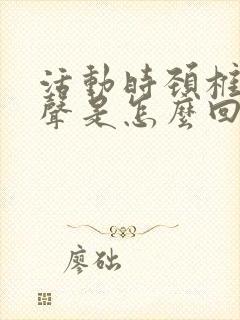 活動時頚椎
聲是怎麼回
廖础